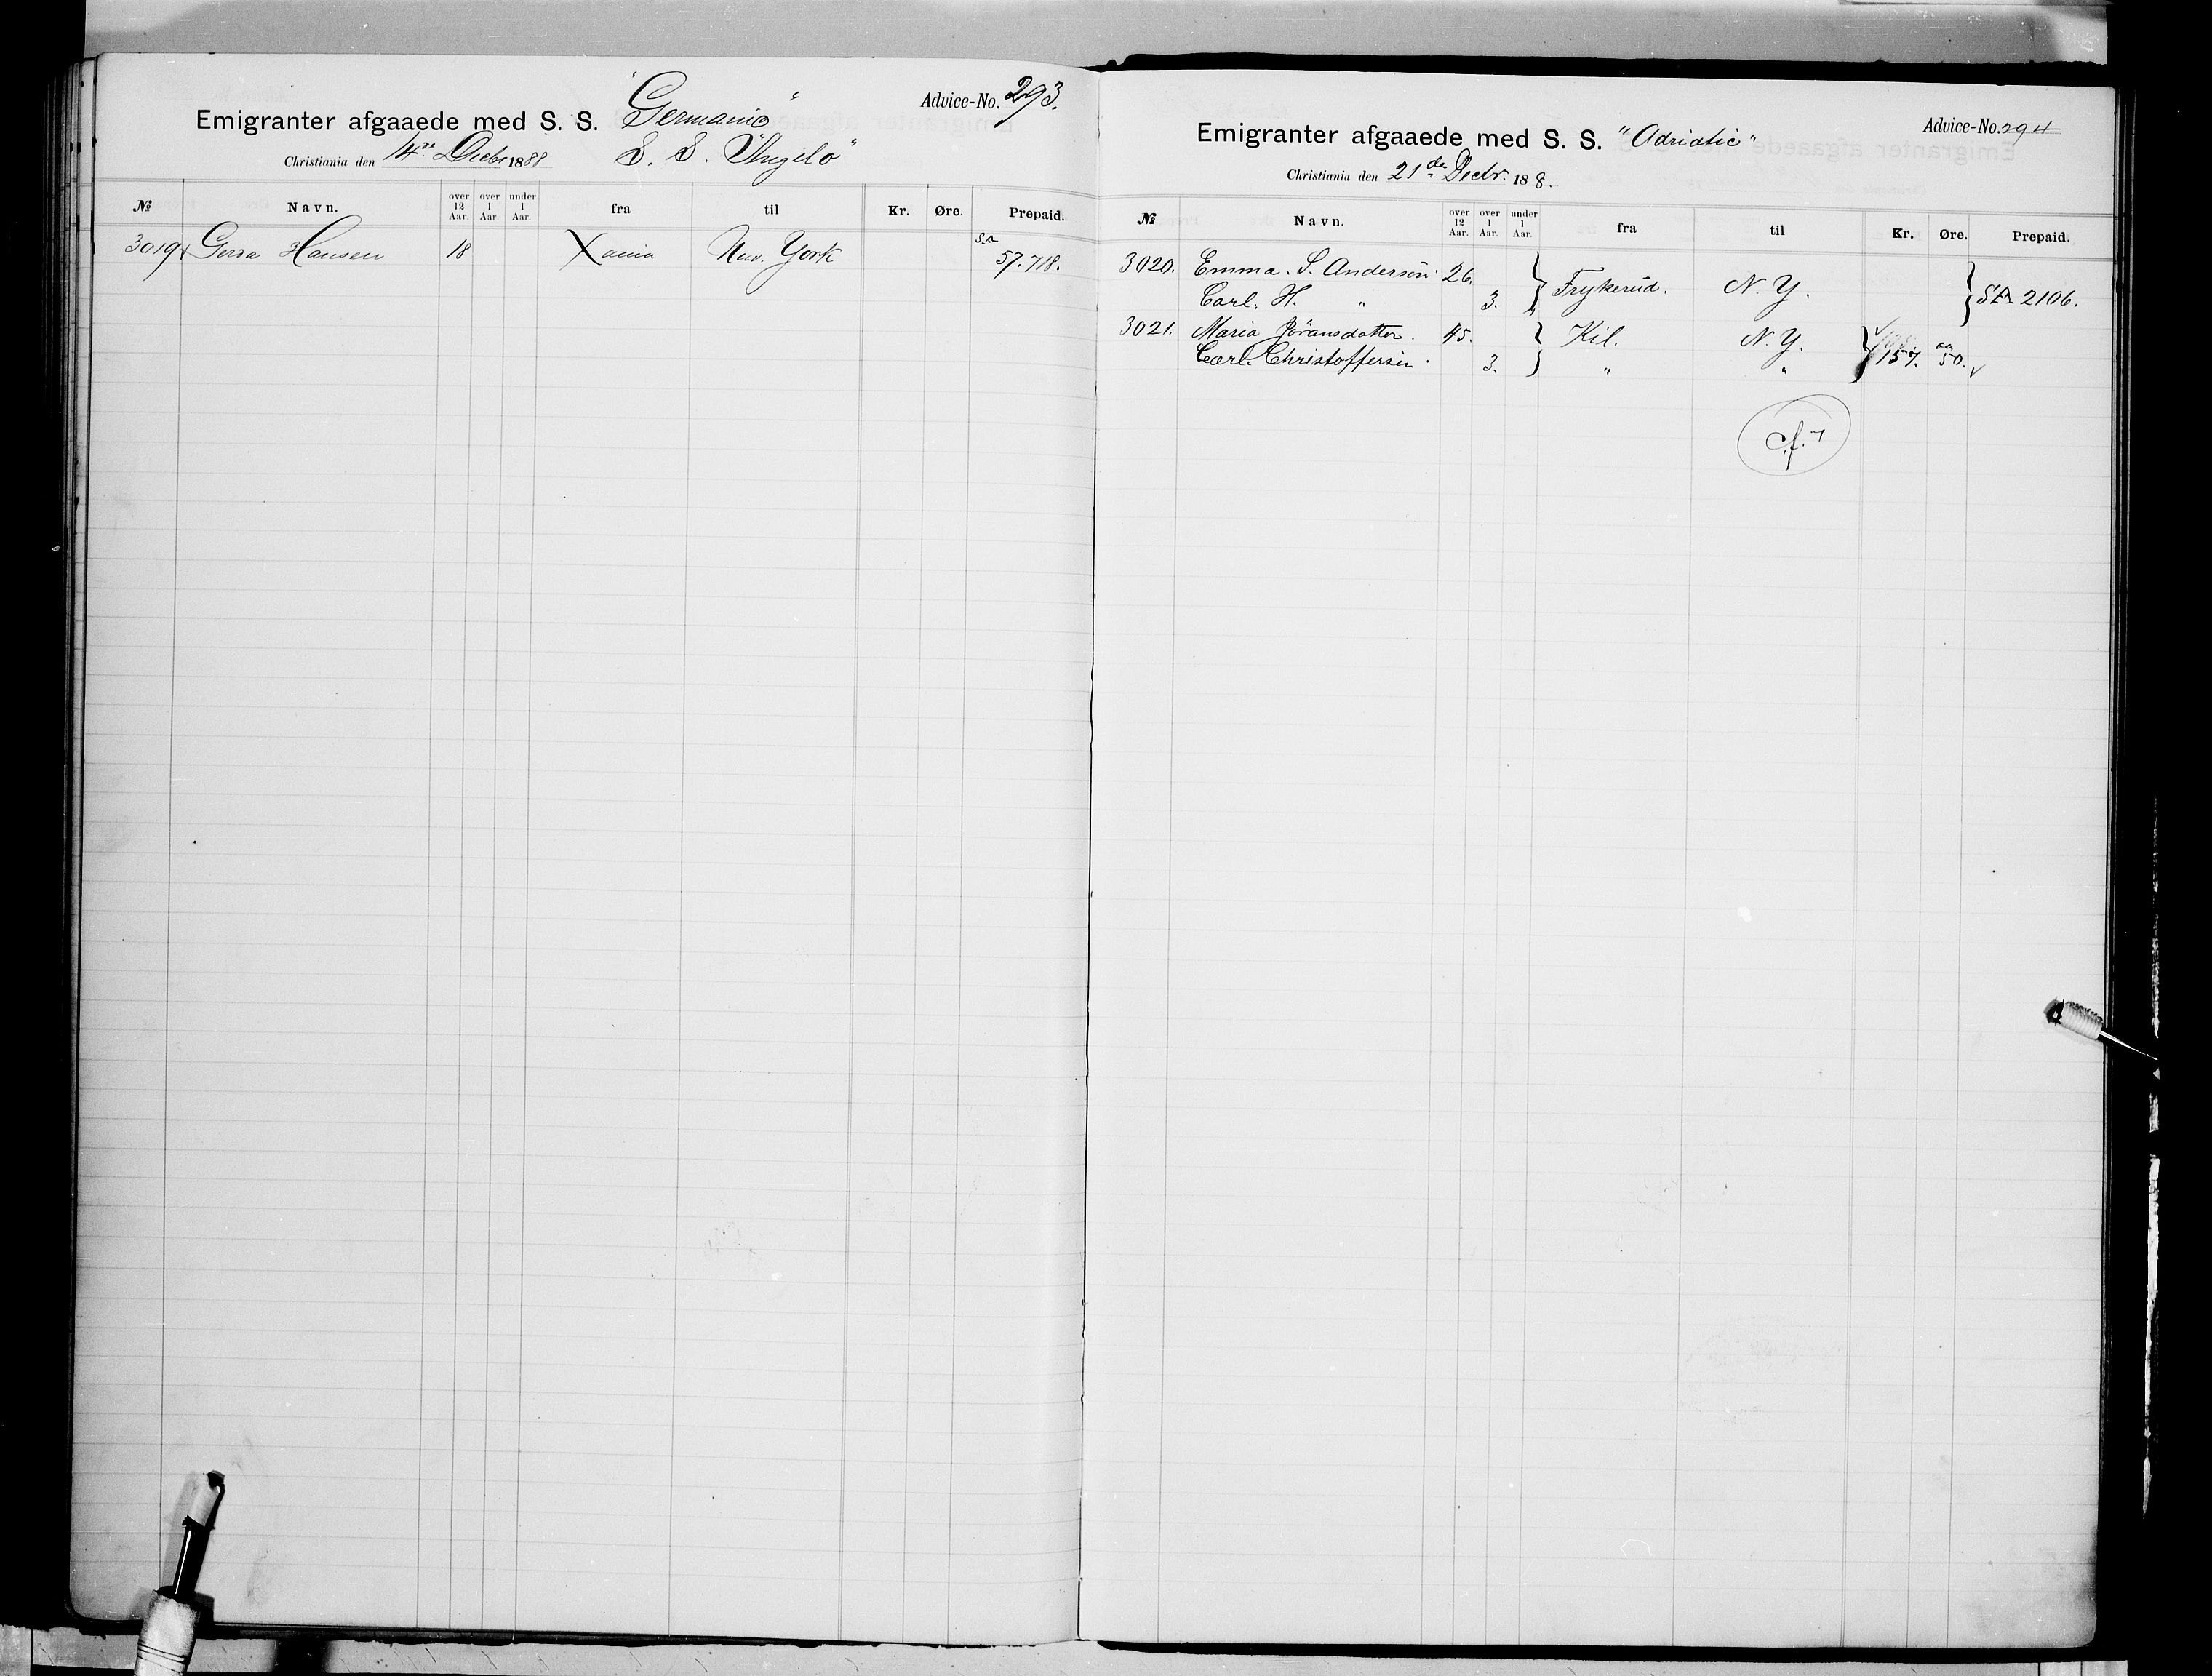 Emigranter afgaaede med S. S. "Germanic" Advice-No. 293.
Christiania den 14de Decbr 1888 S. S. "Angelo"
№ Navn. over 12 Aar. over 1 Aar. under 1 Aar. fra til Kr. Øre. Prepaid.
3019 Gerda Hansen 18 Xania New. York 57.718.
Emigranter afgaaede med S. S. "Adriatic" Advice-No. 294
Christiania den 21de Decbr. 188 8.
№ Navn. over 12 Aar. over 1 Aar. under 1 Aar. fra til Kr. Øre. Prepaid.
3020. Emma. S. Anderson 26. } Frykerud. N. Y. } 2106.
Carl. H. " 3.
3021. Maria Jöransdotter. 45. } Kil. N. Y. } 157. 50.
Carl. Christoffersen. 3. " "